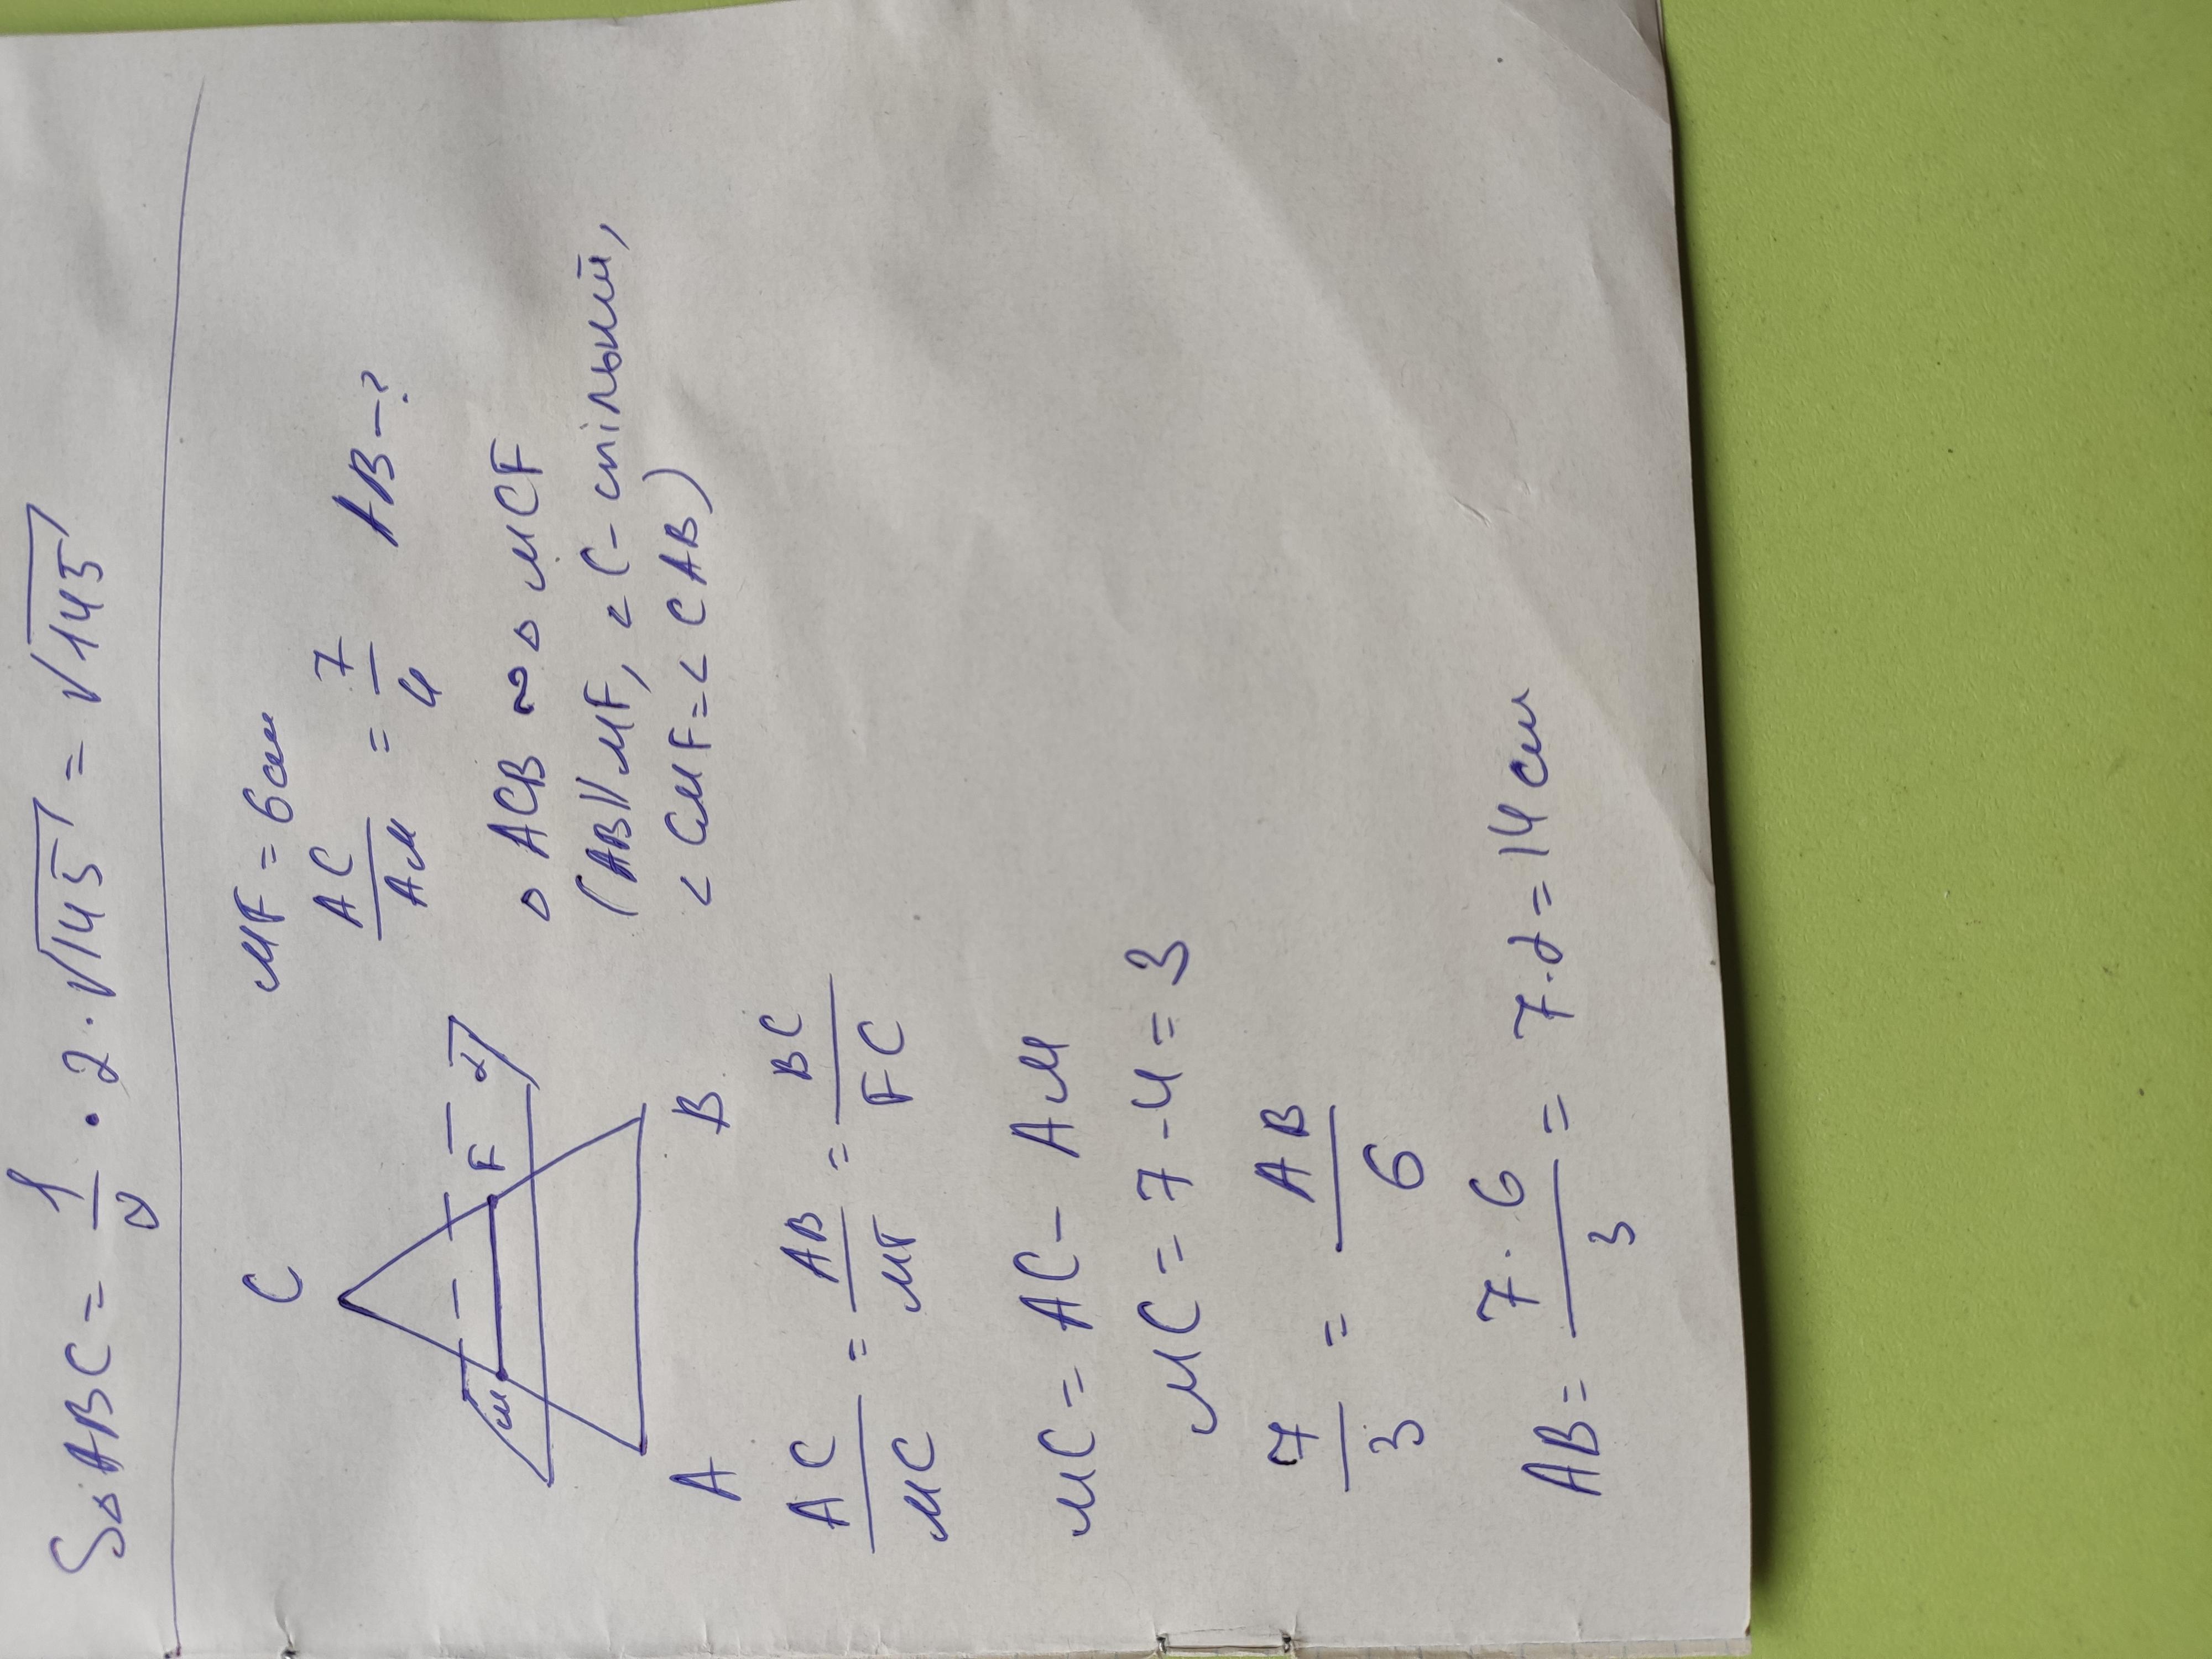 S△ABC = 1/2 · 2 · √145 = √145
MF = 6 см
AC/AM = 7/4 AB - ?
C
M F α
A B
△ ACB ∾ △ MCF
(AB || MF, ∠C - спільний,
∠CMF = ∠CAB)
AC/MC = AB/MF = BC/FC
MC = AC - AM
MC = 7 - 4 = 3
7/3 = AB/6
AB = 7·6/3 = 7·2 = 14 см